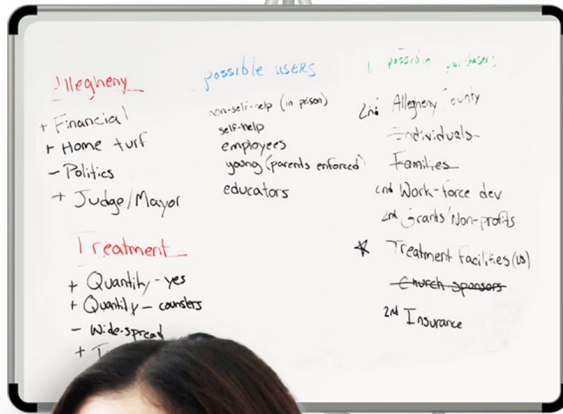 Allegheny
+ Financial
+ Home turf
- Politics
+ Judge/Mayor
Treatment
+ Quantity - yes
+ Quantity - counslers
- Wide-spread
+ T
possible users
non-self-help (in prison)
self-help
employees
young (parents enforced)
educators
possible purchasers
2nd Allegheny County
Individuals
Families
2nd Work-force dev
2nd Grants/Non-profits
* Treatment facilities (us)
Church sponsors
2nd Insurance